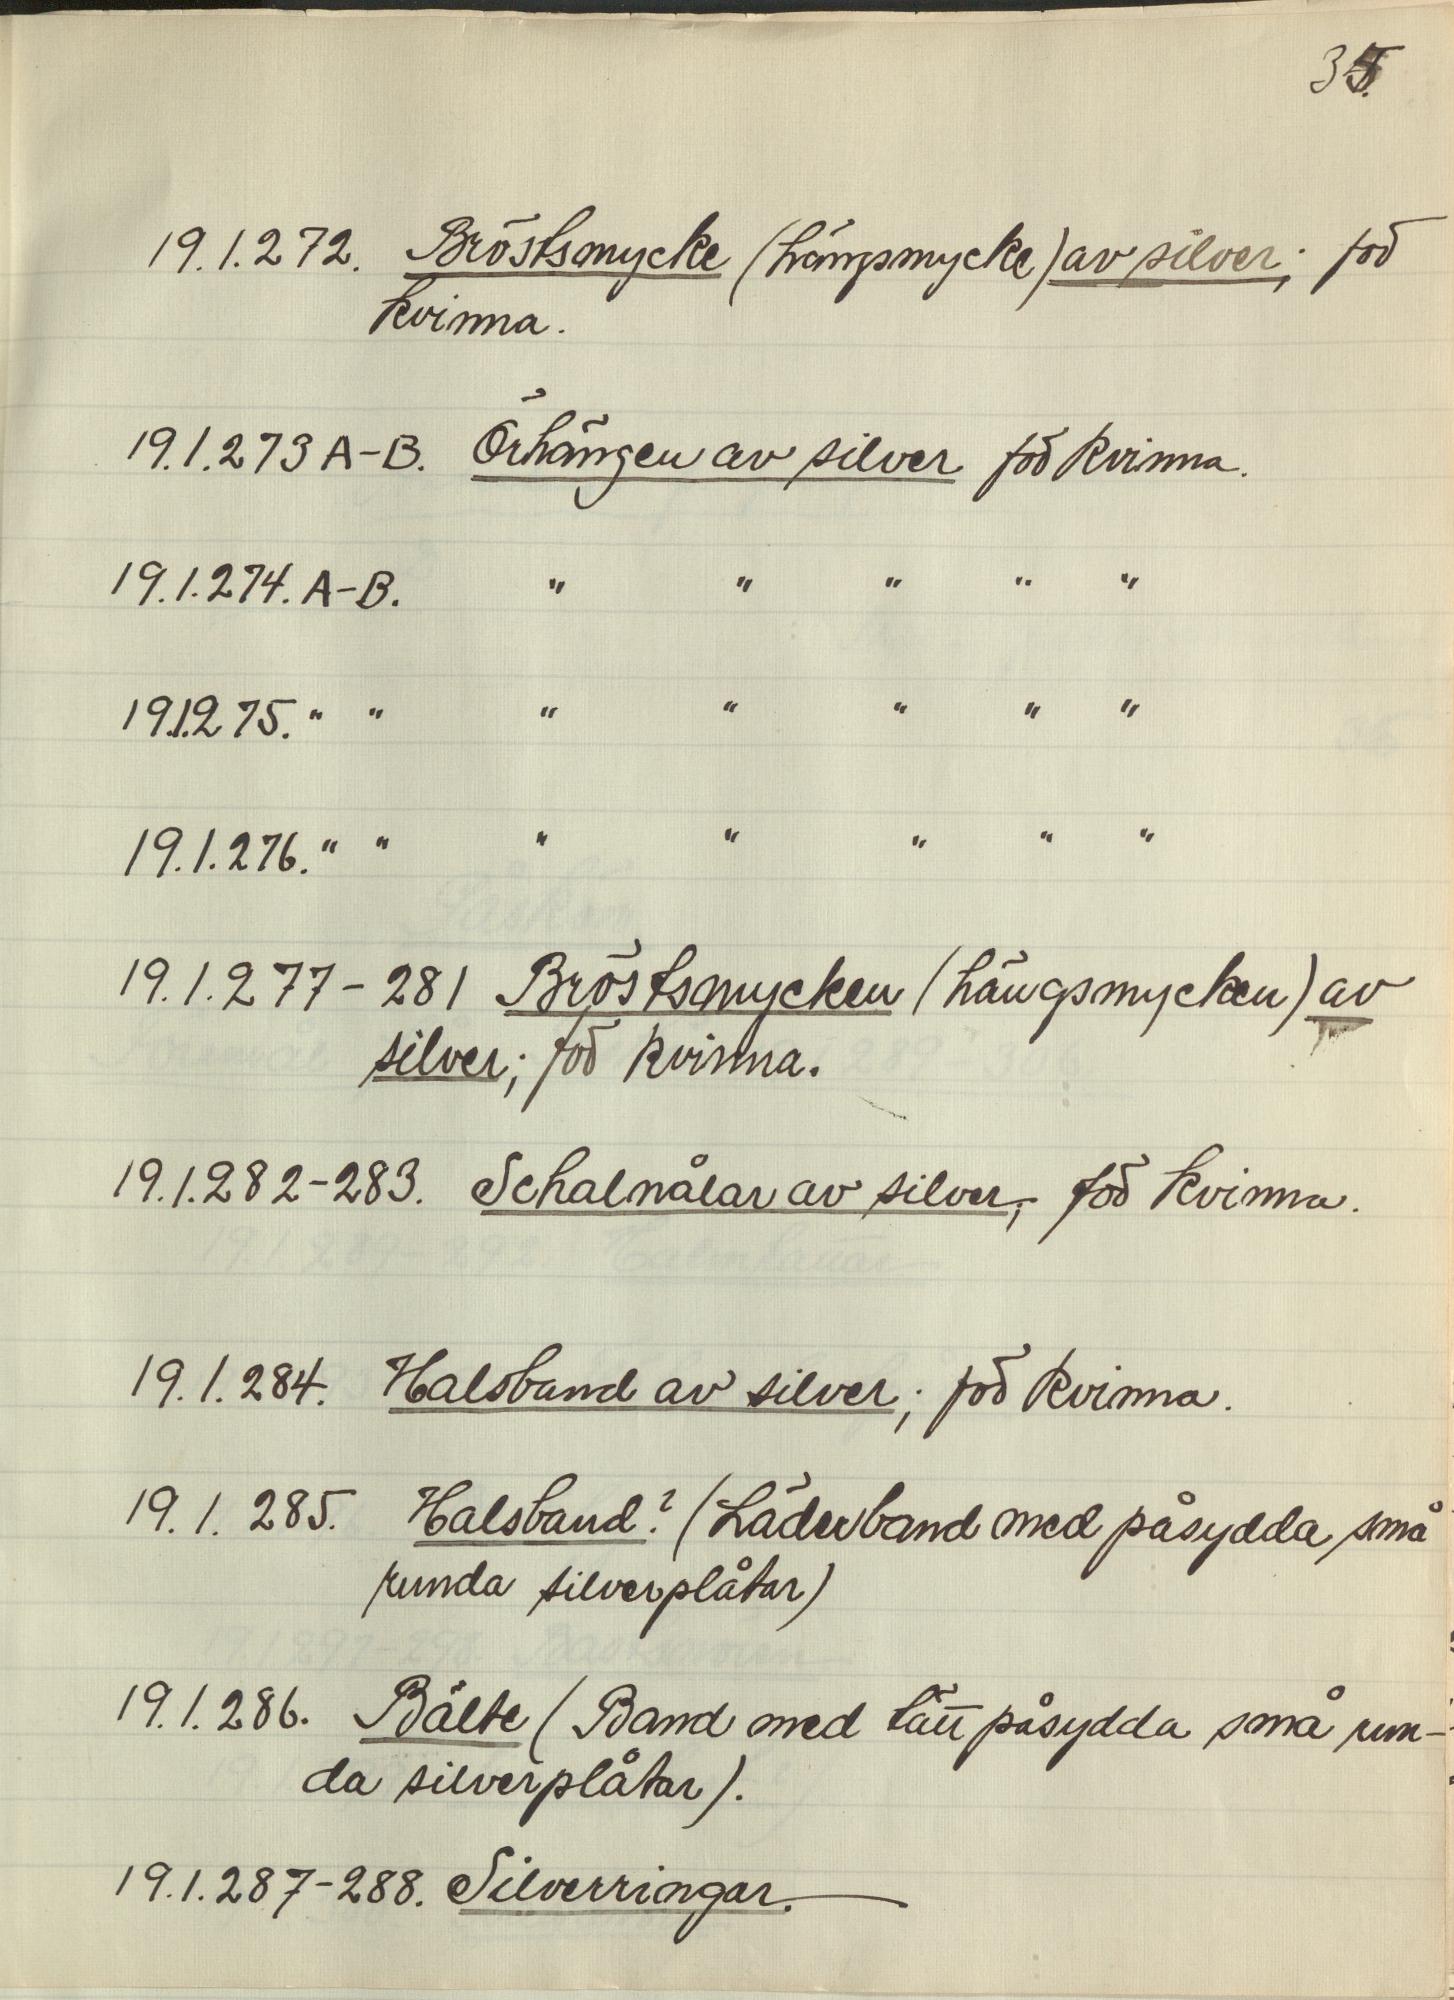 35.
19.1.272. Bröstsmycke (hängsmycke) av silver; för
kvinna.
19.1.273 A-B. Örhängen av silver för kvinna.
19.1.274. A-B. " " " " "
19.1.275. " " " " " " "
19.1.276. " " " " " " "
19.1.277-281 Bröstsmycken (hängsmycken) av
silver; för kvinna.
19.1.282-283. Schalnålar av silver; för kvinna.
19.1.284. Halsband av silver; för kvinna.
19.1.285. Halsband? (Läderband med påsydda, små
runda silverplåtar)
19.1.286. Bälte (Band med tätt påsydda små run-
da silverplåtar).
19.1.287-288. Silverringar.